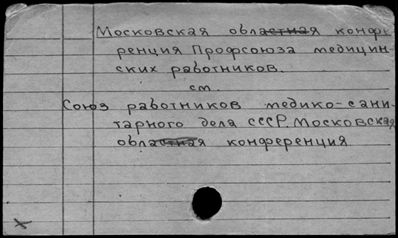 Московская областная конфе
ренция Профсоюза медицин
ских работников.
см.
Союз работников медико-сани
тарного дела СССР. Московская
областная конференция